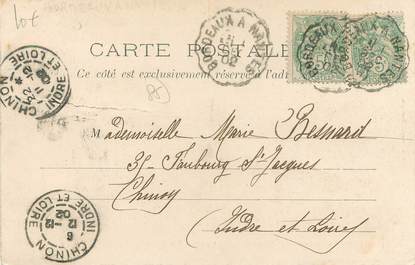 Lot
BORDEAUX A NANTES
02
CARTE POSTALE
Ce côté est exclusivement réservé à l'adr
CHINON
INDRE ET LOIRE
02
Mademoiselle Marie Besnard
35 Faubourg St Jacques
Chinon
Indre et Loire
CHINON
6
12 - 12
02
INDRE ET LOIRE